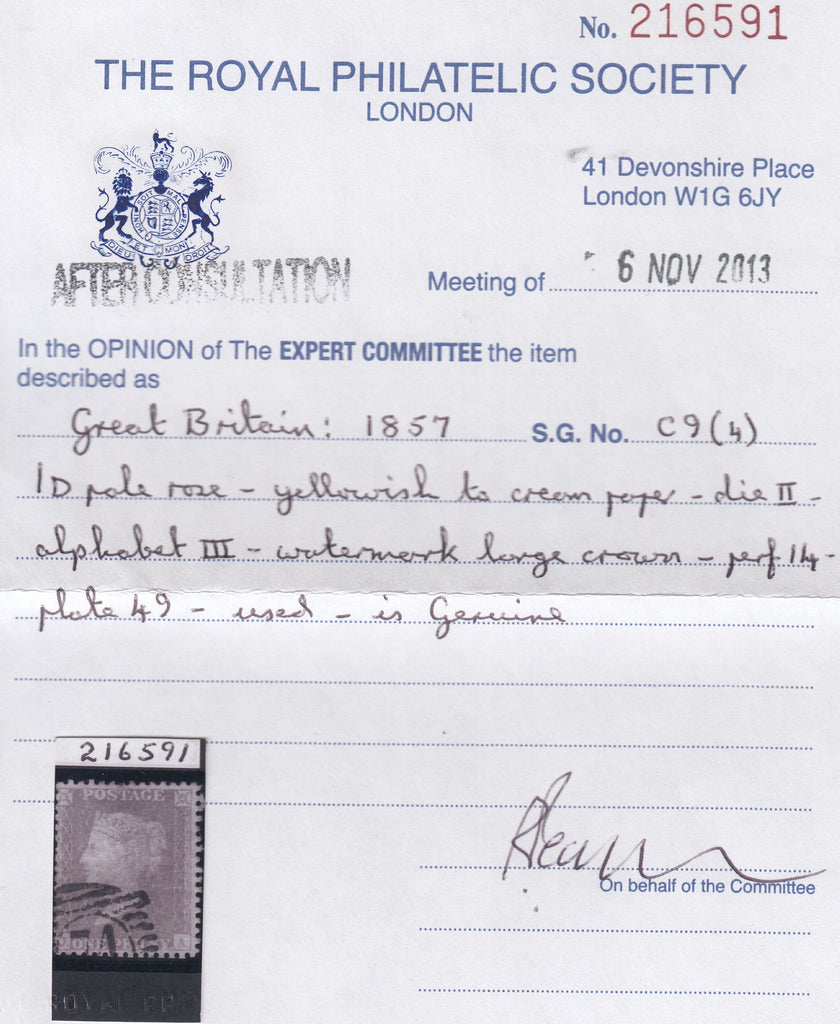 No. 216591
THE ROYAL PHILATELIC SOCIETY
LONDON
41 Devonshire Place
London W1G 6JY
DIEU ET MON DROIT
AFTER CONSULTATION
Meeting of 6 NOV 2013
In the OPINION of The EXPERT COMMITTEE the item
described as
Great Britain: 1857 S.G. No. C9(4)
1D pale rose - yellowish to cream paper - die II -
alphabet III - watermark large crown - perf 14 -
plate 49 - used - is Genuine
216591
POSTAGE
ONE PENNY A
ROYAL
On behalf of the Committee